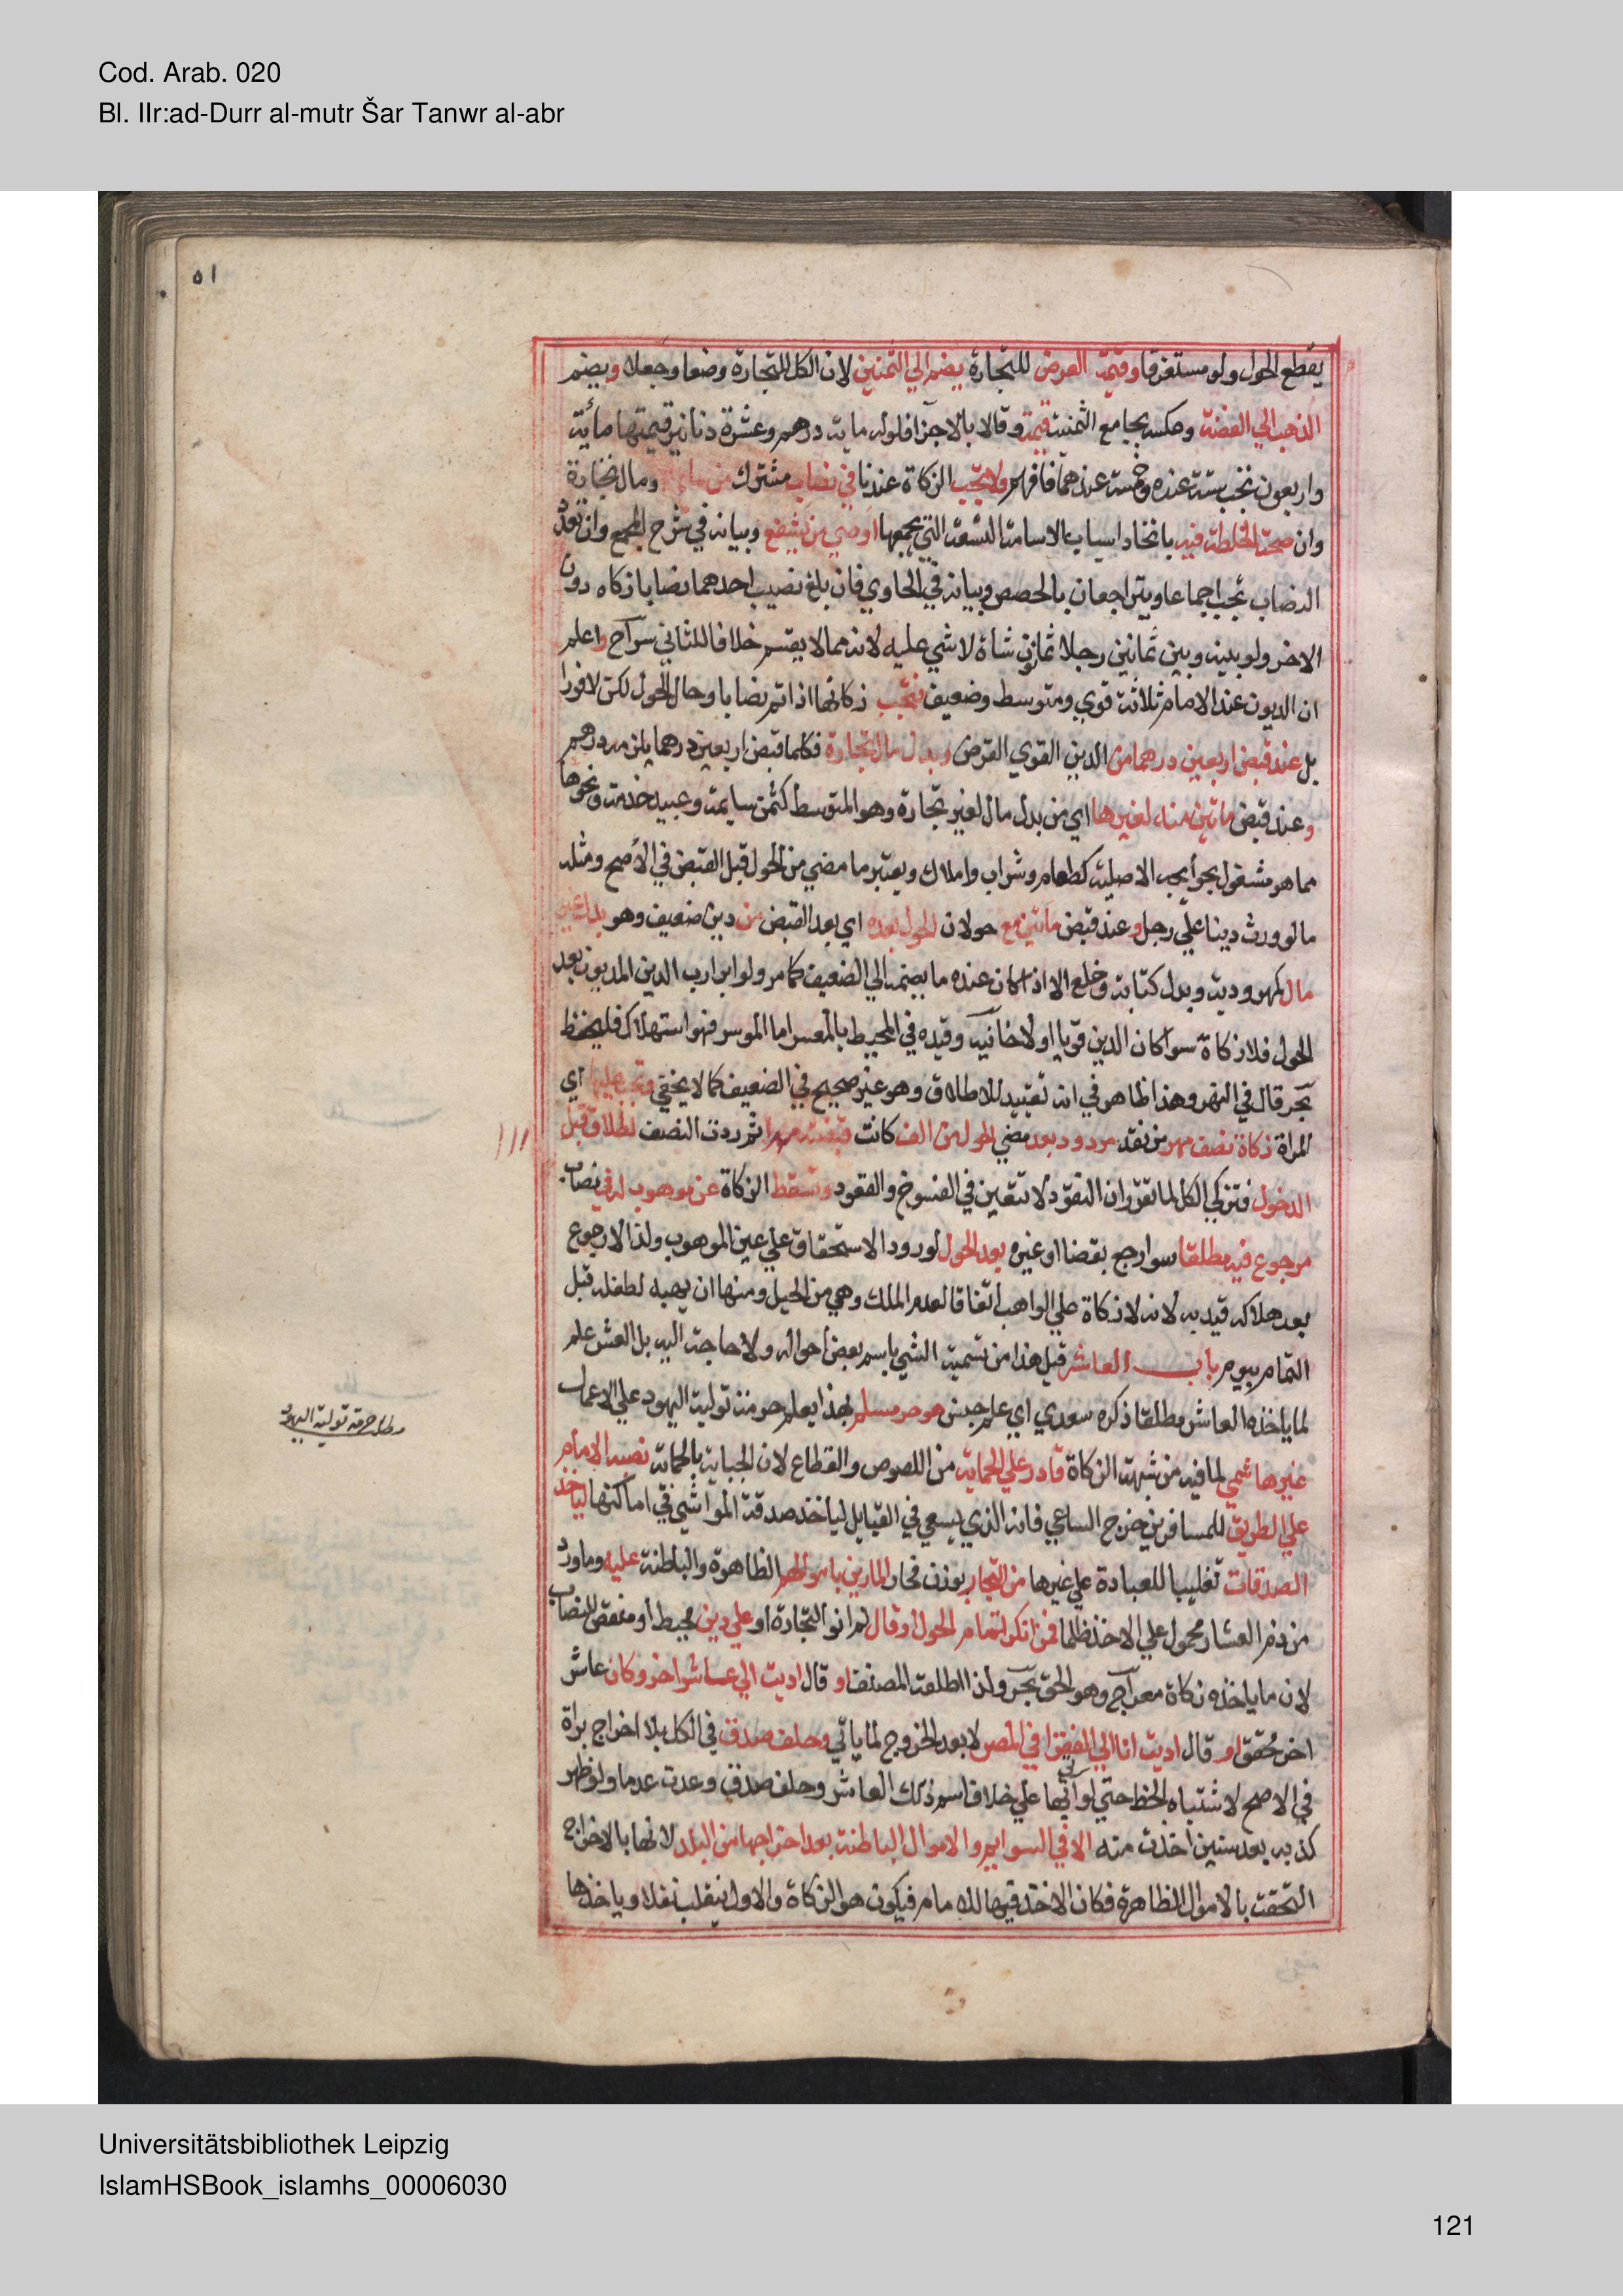 Cod. Arab. 020
Bl. IIr:ad-Durr al-mutr Šar Tanwr al-abr
٥١
يقطع الحول ولو مستغرقا وقيمة العرض للتجارة يضم الي الثمنين لان الكل للتجارة وضعا وجعلا ويضم
الذهب الي الفضة وعكسه بجامع الثمنية قيمة وقالا بالاجزا فلو له مايه درهم وعشرة دنانير قيمتها مائة
واربعون تجب ستة عنده وخمسة عندهما فافهم ولا تجب الزكاة عندنا في نصاب مشترك من سايمة ومال تجارة
وان صحت الخلطة فيه باتحاد اسباب الاسامة التسعة التي يجمعها اوصي من يشفع وبيانه في شرح المجمع وان تعدد
النصاب تجب اجماعا ويتراجعان بالحصص وبيانه في الحاوي فان بلغ نصيب احدهما نصابا زكاه دون
الاخر ولو بينه وبين ثمانين رجلا ثمانون شاة لا شي عليه لانه مما لا يقسم خلافا للثاني سراج واعلم
ان الديون عند الامام ثلاثة قوي ومتوسط وضعيف فتجب زكاتها اذا تم نصابا وحال الحول لكن لا فورا
بل عند قبض اربعين درهما من الدين القوي القرض وبدل مال تجارة فكلما قبض اربعين درهما يلزمه درهم
وعند قبض ماتين منه لغيرها اي من بدل مال لغير تجارة وهو المتوسط كثمن سايمة وعبيد خدمة ونحوها
مما هو مشغول بحوائجه الاصلية كطعام وشراب واملاك ويعتبر ما مضي من الحول قبل القبض في الاصح ومثله
ما لو ورث دينا علي رجل وعند قبض ماتين مع حولان الحول بعده اي بعد القبض من دين ضعيف وهو بدل غير
مال كمهر ودية وبدل كتابة وخلع الا اذا كان عنده ما يضمه الي الضعيف كما مر ولو ابرا رب الدين المديون بعد
الحول فلا زكاة سوا كان الدين قويا او لا خانية وقيده في المحيط بالمعسر اما الموسر فهو استهلاك فليحفظ
بحر قال في النهر وهذا ظاهر في انه تقييد للاطلاق وهو غير صحيح في الضعيف كما لا يخفي وتجب عليها اي
المراة زكاة نصف مهر من نقد مردود بعد مضي الحول من الف كانت قبضته مهرا ثم ردت النصف لطلاق قبل
الدخول فتزكي الكل لما تقرر ان النقود لا تتعين في الفسوخ والعقود وتسقط الزكاة عن موهوب له في نصاب
مرجوع فيه مطلقا سوا رجع بقضا او غيره بعد الحول لورود الاستحقاق علي عين الموهوب ولذا لا رجوع
بعد هلاكه قيد به لانه لا زكاة علي الواهب اتفاقا لعدم الملك وهي من الحيل ومنها ان يهبه لطفله قبل
التمام بيوم باب العاشر قيل هذا من تسمية الشي باسم بعض احواله ولا حاجة اليه بل العشر علم
لما ياخذه العاشر مطلقا ذكره سعدي اي علم جنس هو حر مسلم بهذا يعلم حرمة تولية اليهود علي الاعمال
غير هاشمي لما فيه من شبهة الزكاة قادر علي الحماية من اللصوص والقطاع لان الجباية بالحماية نصبه الامام
علي الطريق للمسافرين خرج الساعي فانه الذي يسعي في القبايل لياخذ صدقة المواشي في اماكنها لياخذ
الصدقات تغليبا للعبادة علي غيرها من التجار بوزن فجار المارين باموالهم الظاهرة والباطنة عليه وما ورد
من ذم العشار محمول علي الاخذ ظلما فمن انكر تمام الحول او قال لم انو التجارة او علي دين محيط او منقص للنصاب
لان ما ياخذه زكاة معراج وهو الحق بحر ولذا اطلقه المصنف او قال اديت الي عاشر اخر وكان عاشر
اخر محقق او قال اديت انا الي الفقرا في المصر لا بعد الخروج لما ياتي وحلف صدق في الكل بلا اخراج براة
في الاصح لاشتباه الخط حتي لو اتي بها علي خلاف اسم ذلك العاشر وحلف صدق وعدت عدما ولو ظهر
كذبه بعد سنين اخذت منه الا في السوايم والاموال الباطنة بعد اخراجها من البلد لانها بالاخراج
التحقت بالاموال الظاهرة فكان الاخذ فيها للامام فيكون هو الزكاة والاول ينقلب نفلا وياخذها
مطلب حرمة تولية اليهود
Universitätsbibliothek Leipzig
IslamHSBook_islamhs_00006030
121